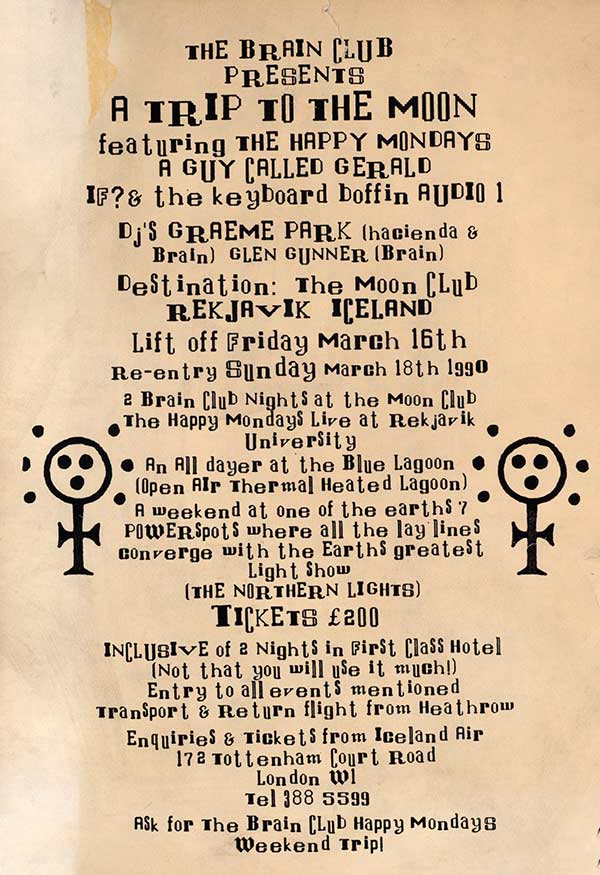 THE BRAIN CLUB
PRESENTS
A TRIP TO THE MOON
featuring THE HAPPY MONDAYS
A GUY CALLED GERALD
IF?& the keyboard boffin AUDIO 1
Dj'S GRAEME PARK (hacienda &
Brain) GLEN GUNNER (Brain)
Destination: The Moon Club
REKJAVIK ICELAND
Lift off Friday March 16th
Re-entry Sunday March 18th 1990
2 Brain Club Nights at the Moon Club
The Happy Mondays Live at Rekjavik
University
An All dayer at the Blue Lagoon
(Open Air Thermal Heated Lagoon)
A weekend at one of the earths 7
POWERSpots where all the lay lines
converge with the Earths greatest
Light Show
(THE NORTHERN LIGHTS)
TICKETS £200
INCLUSIVE of 2 Nights in First Class Hotel
(Not that you will use it much!)
Entry to all events mentioned
Transport & Return flight from Heathrow
Enquiries & Tickets from Iceland Air
172 Tottenham Court Road
London W1
Tel 388 5599
Ask for The Brain Club Happy Mondays
Weekend Trip!